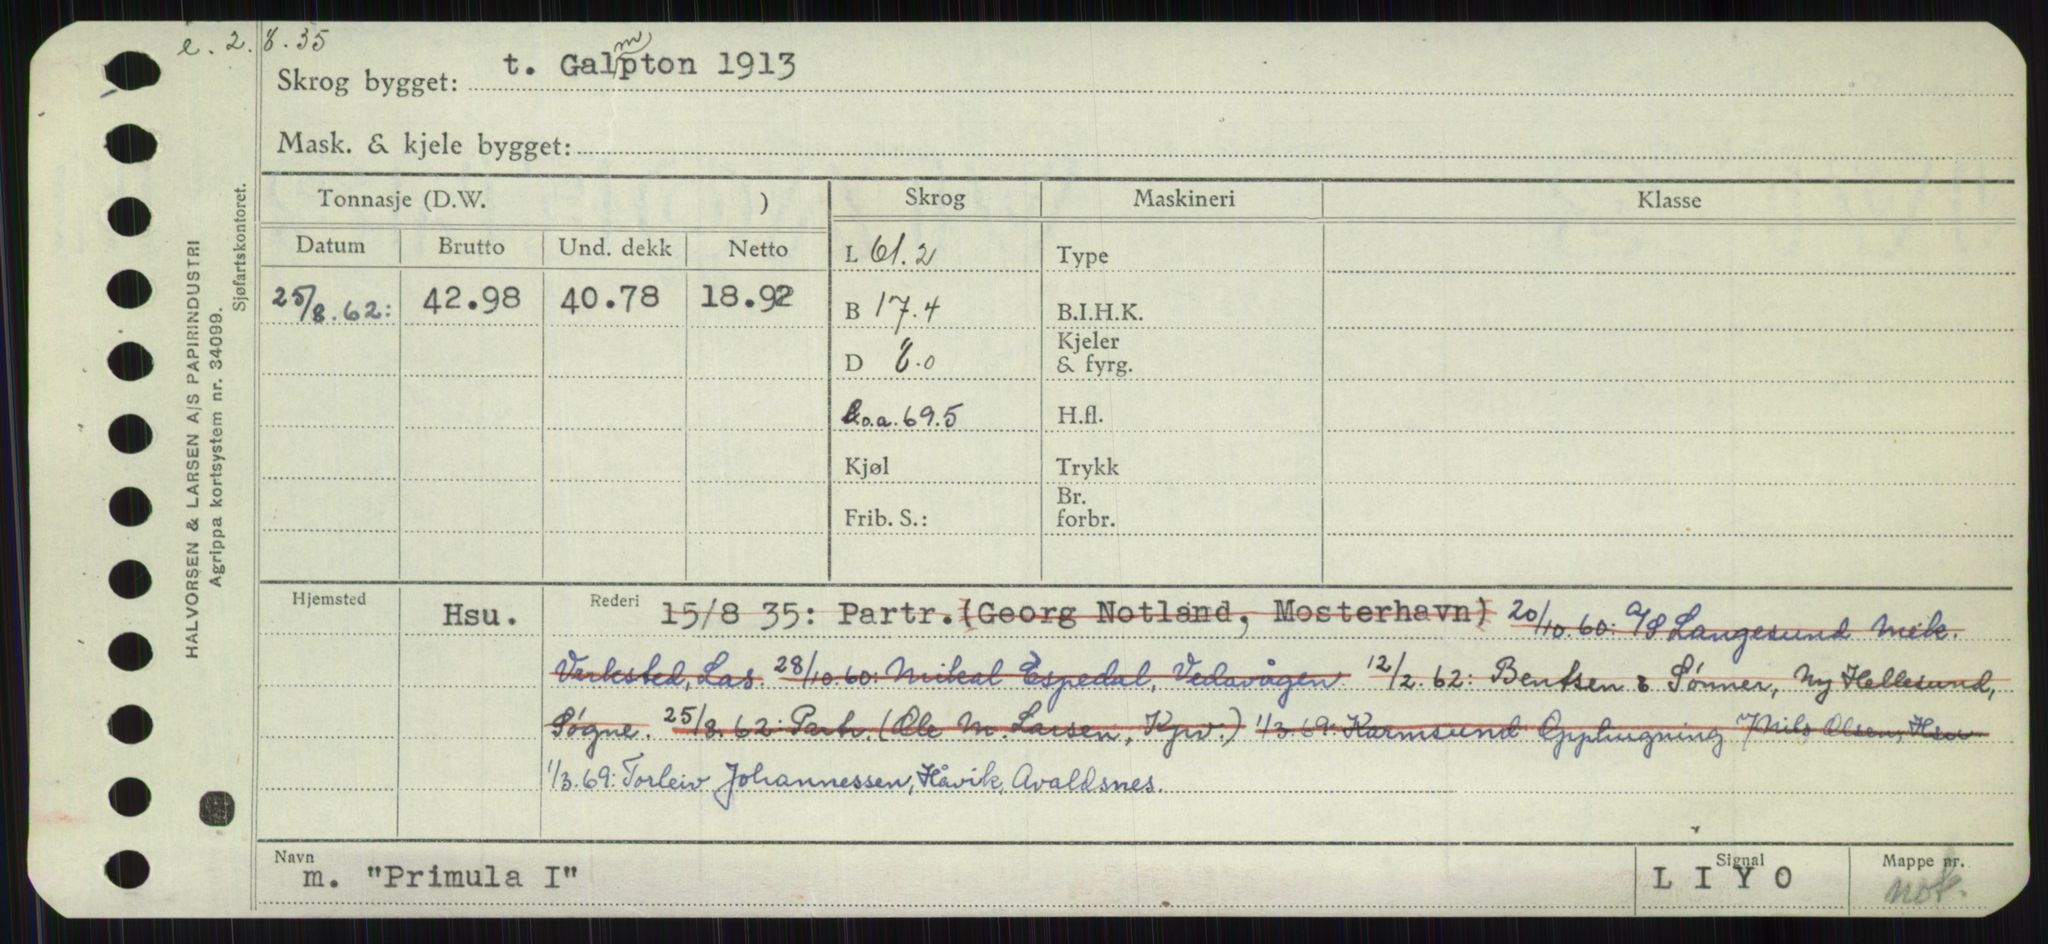 e. 2.8.35
m
t. Galpton 1913
Skrog bygget:
Mask. & kjele bygget:
Tonnasje (D.W. ) Skrog Maskineri Klasse
Datum Brutto Und. dekk Netto L 61.2 Type
25/8.62: 42.98 40.78 18.92 B 17.4 B.I.H.K.
D 8.0 Kjeler & fyrg.
L.o.a. 69.5 H.fl.
Kjøl Trykk
Frib. S.: Br. forbr.
Hjemsted Hsu. Rederi 15/8 35: Partr. (Georg Notland, Mosterhavn) 20/10.60: A/S Langesund Mek.
Verksted, Las. 28/10.60: Mikal Espedal, Vedavågen. 12/2.62: Bentsen & Sønner, Ny Hellesund,
Søgne. 25/8.62: Partr. (Ole M. Larsen, Kpv.) 1/3.69: Karmsund Opphugning Nils Olsen, Hsu
1/3.69: Torleiv Johannessen, Håvik, Avaldsnes.
Navn m. "Primula I" Signal L I Y O Mappe nr. not.
HALVORSEN & LARSEN A/S PAPIRINDUSTRI
Agrippa kortsystem nr. 34099.
Sjøfartskontoret.